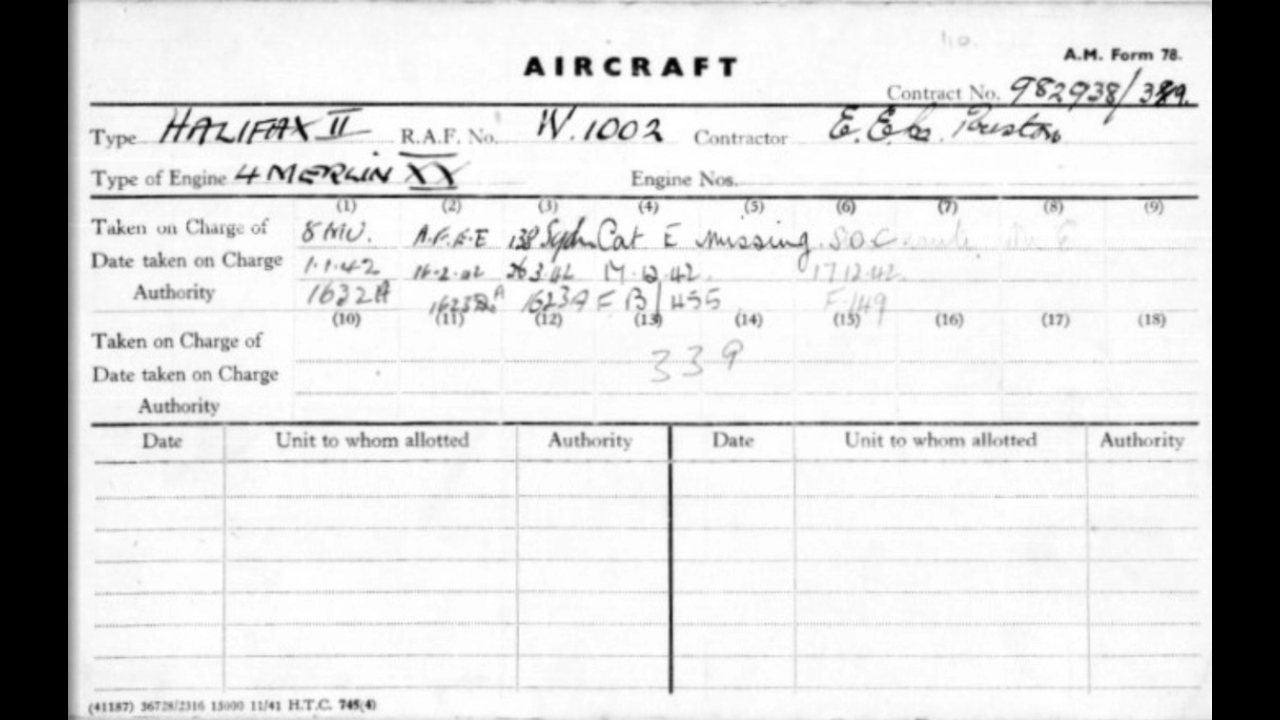 AIRCRAFT
A.M. Form 78.
Contract No. 982938/389.
Type HALIFAX II R.A.F. No. W.1002 Contractor E.E.Co. Preston
Type of Engine 4 MERLIN XX Engine Nos.
(1) (2) (3) (4) (5) (6) (7) (8) (9)
Taken on Charge of 8 MU. A.F.E.E 138 Sqdn Cat E Missing S.O.C
Date taken on Charge 1.1.42 16.2.42 26.3.42 17.12.42. 17.12.42.
Authority 1632A 1623A 1623A F B/455 F.149
(10) (11) (12) (13) (14) (15) (16) (17) (18)
Taken on Charge of
339
Date taken on Charge
Authority
Date Unit to whom allotted Authority Date Unit to whom allotted Authority
(41187) 36728/2316 15000 11/41 H.T.C. 745(4)